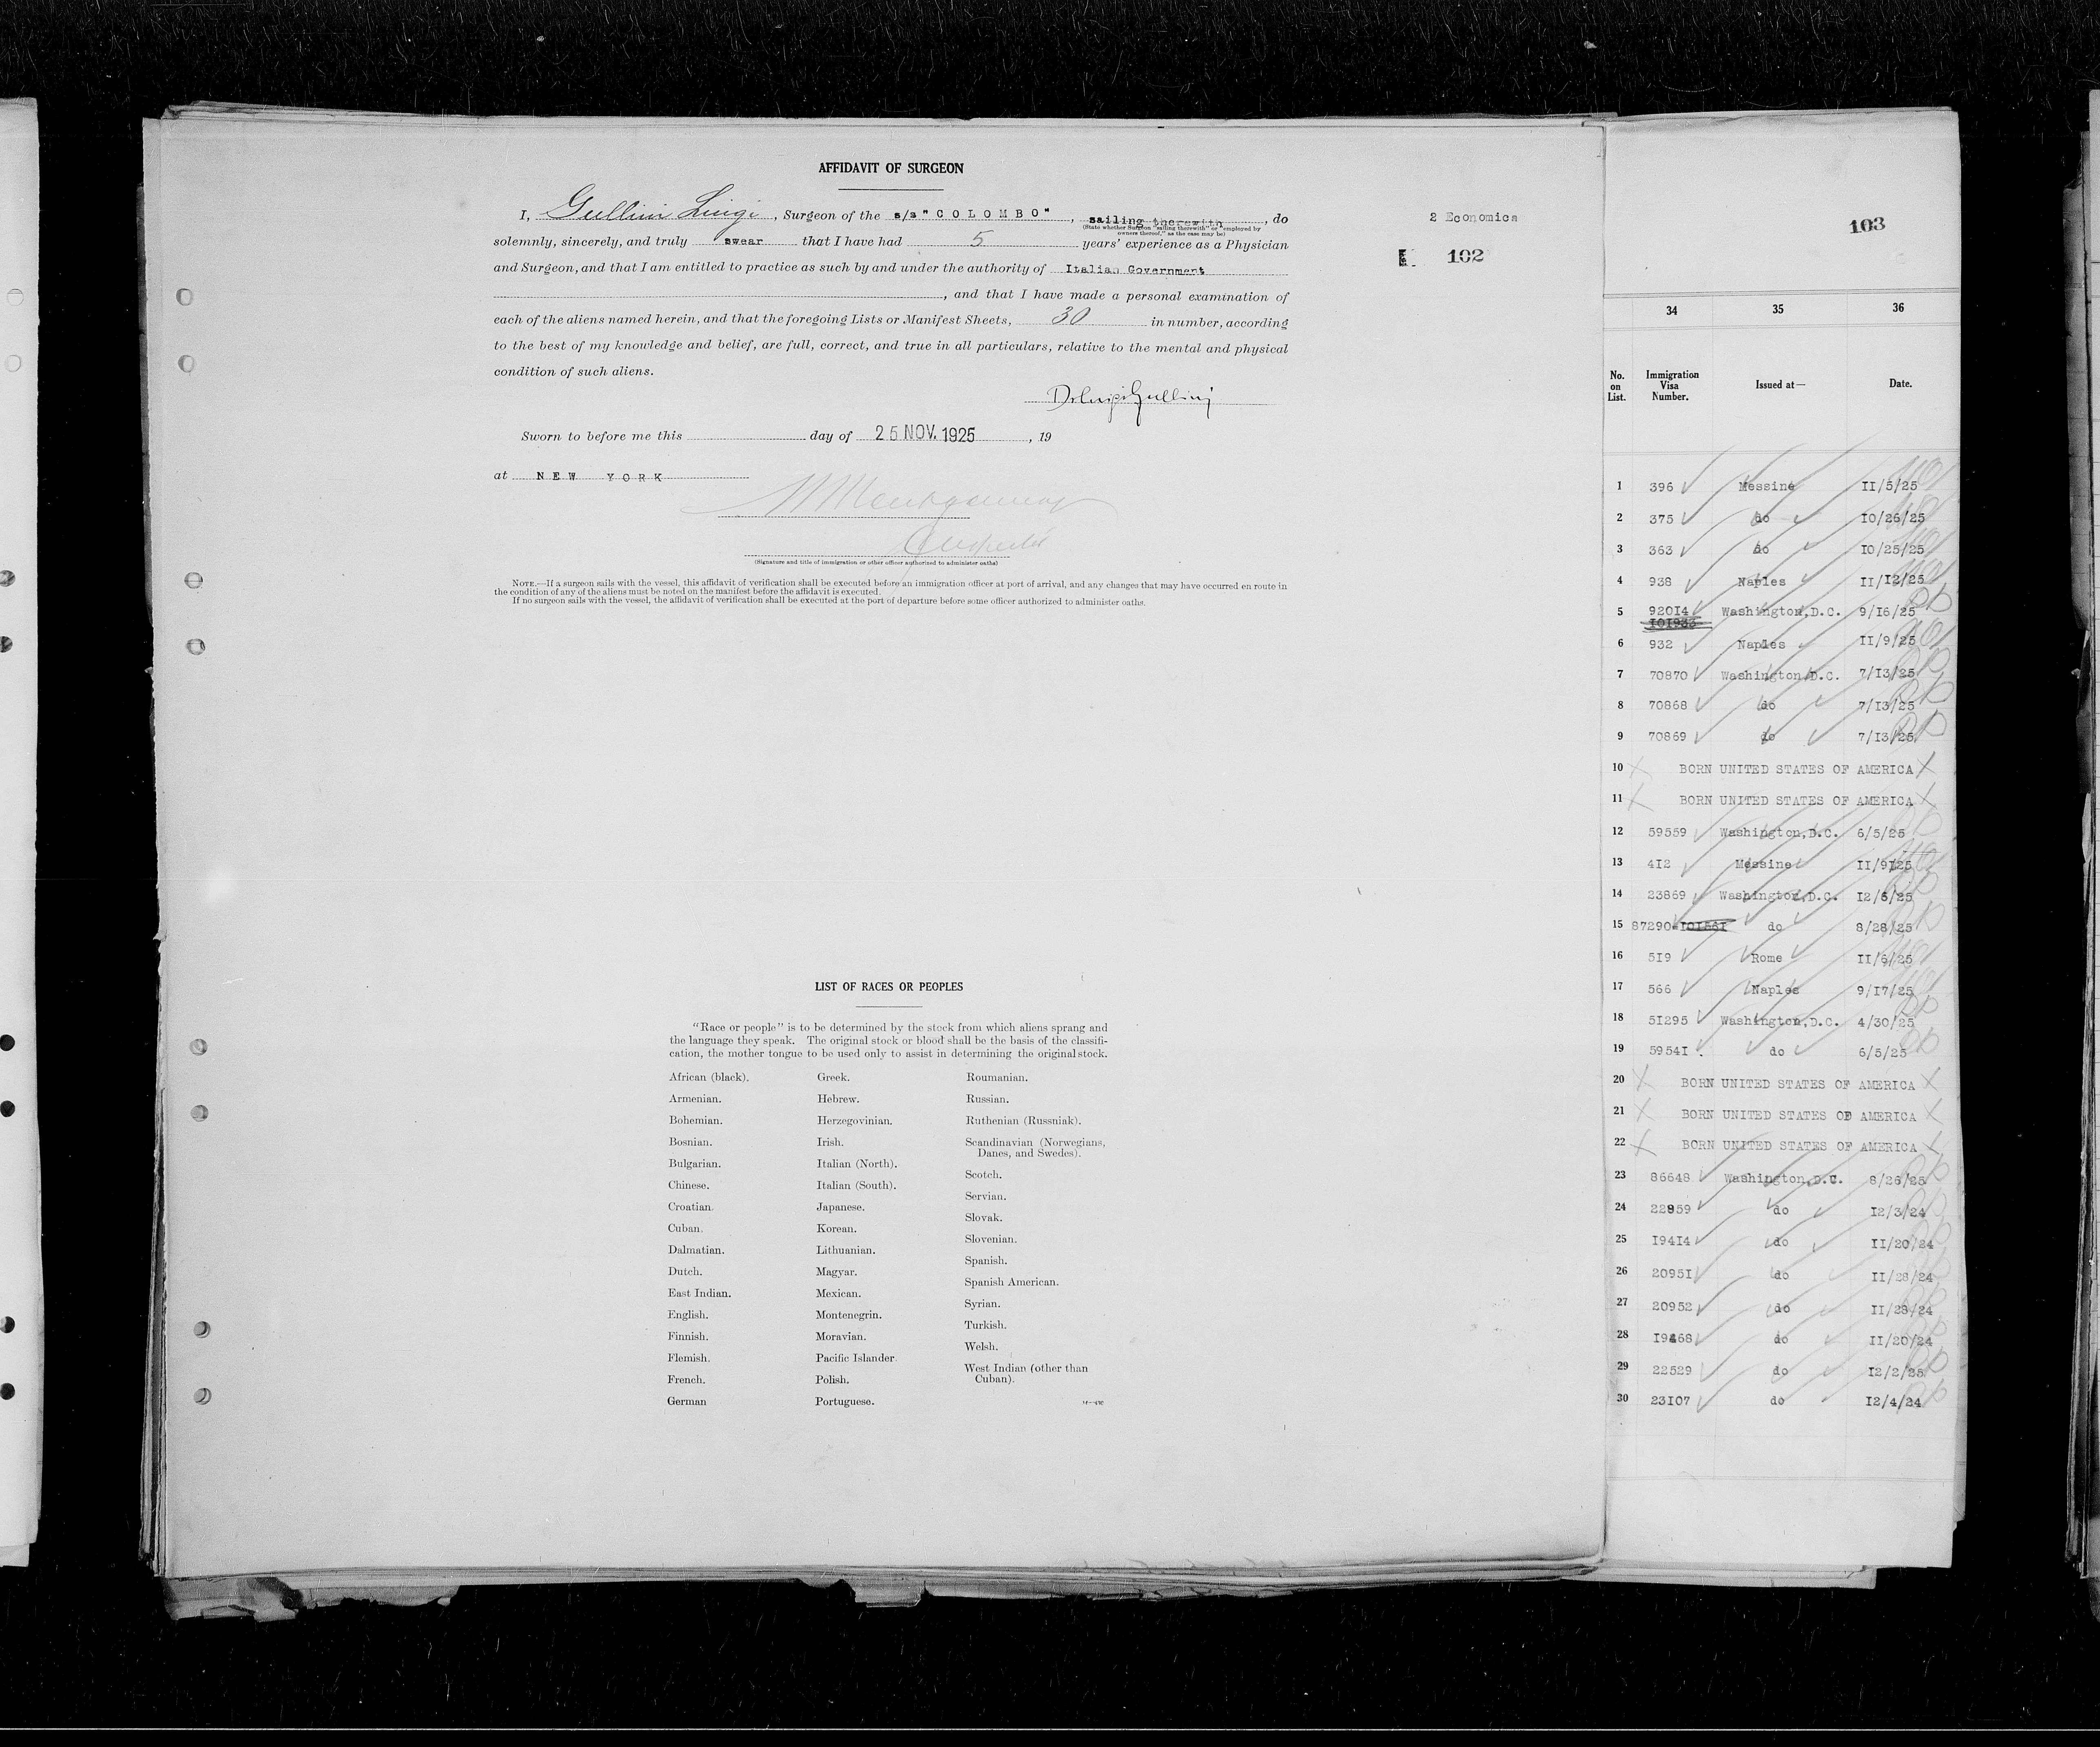 AFFIDAVIT OF SURGEON
I, Gullini Luigi, Surgeon of the s/s "COLOMBO", sailing therewith, do
(State whether Surgeon "sailing therewith" or "employed by
owners thereof," as the case may be)
solemnly, sincerely, and truly swear that I have had 5 years' experience as a Physician
and Surgeon, and that I am entitled to practice as such by and under the authority of Italian Government
, and that I have made a personal examination of
each of the aliens named herein, and that the foregoing Lists or Manifest Sheets, 30 in number, according
to the best of my knowledge and belief, are full, correct, and true in all particulars, relative to the mental and physical
condition of such aliens.
Dr Luigi Gullini
Sworn to before me this day of 25 NOV. 1925, 19
at NEW YORK
(Signature and title of immigration or other officer authorized to administer oaths)
NOTE.—If a surgeon sails with the vessel, this affidavit of verification shall be executed before an immigration officer at port of arrival, and any changes that may have occurred en route in
the condition of any of the aliens must be noted on the manifest before the affidavit is executed.
If no surgeon sails with the vessel, the affidavit of verification shall be executed at the port of departure before some officer authorized to administer oaths.
2 Economica
102
LIST OF RACES OR PEOPLES
"Race or people" is to be determined by the stock from which aliens sprang and
the language they speak. The original stock or blood shall be the basis of the classifi-
cation, the mother tongue to be used only to assist in determining the original stock.
African (black).
Armenian.
Bohemian.
Bosnian.
Bulgarian.
Chinese.
Croatian.
Cuban.
Dalmatian.
Dutch.
East Indian.
English.
Finnish.
Flemish.
French.
German
Greek.
Hebrew.
Herzegovinian.
Irish.
Italian (North).
Italian (South).
Japanese.
Korean.
Lithuanian.
Magyar.
Mexican.
Montenegrin.
Moravian.
Pacific Islander.
Polish.
Portuguese.
Roumanian.
Russian.
Ruthenian (Russniak).
Scandinavian (Norwegians,
Danes, and Swedes).
Scotch.
Servian.
Slovak.
Slovenian.
Spanish.
Spanish American.
Syrian.
Turkish.
Welsh.
West Indian (other than
Cuban).
103
34 35 36
No. on List. Immigration Visa Number. Issued at— Date.
1 396 Messine 11/5/25
2 375 do 10/26/25
3 363 do 10/25/25
4 938 Naples 11/12/25
5 92014 Washington,D.C. 9/16/25
6 932 Naples 11/9/25
7 70870 Washington,D.C. 7/13/25
8 70868 do 7/13/25
9 70869 do 7/13/25
10 BORN UNITED STATES OF AMERICA
11 BORN UNITED STATES OF AMERICA
12 59559 Washington,D.C. 6/5/25
13 412 Messine 11/9/25
14 23869 Washington,D.C. 12/6/25
15 87290 do 8/28/25
16 519 Rome 11/6/25
17 566 Naples 9/17/25
18 51295 Washington,D.C. 4/30/25
19 59541 do 6/5/25
20 BORN UNITED STATES OF AMERICA
21 BORN UNITED STATES OF AMERICA
22 BORN UNITED STATES OF AMERICA
23 86648 Washington,D.C. 8/26/25
24 22859 do 12/3/24
25 19414 do 11/20/24
26 20951 do 11/28/24
27 20952 do 11/28/24
28 19468 do 11/20/24
29 22529 do 12/2/25
30 23107 do 12/4/24